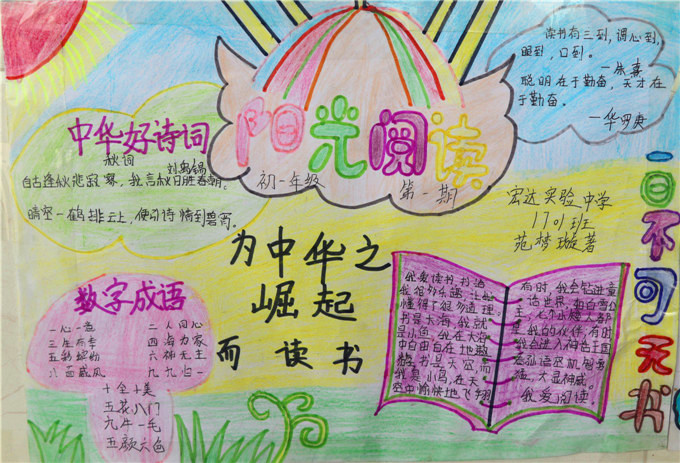 阳光阅读
初一年级
第一期
读书有三到，谓心到，
眼到，口到。
—朱熹
聪明在于勤奋，天才在
于勤奋。
—华罗庚
中华好诗词
秋词
刘禹锡
自古逢秋悲寂寥，我言秋日胜春朝。
晴空一鹤排云上，便引诗情到碧霄。
宏达实验中学
1701班
苑梦璇著
为中华之
崛起
而读书
数字成语
一心一意
二人同心
三生有幸
四海为家
五彩缤纷
六神无主
八面威风
九九归一
十全十美
五花八门
九牛一毛
五颜六色
我爱读书，书给
我很多乐趣，让我
懂得了很多道理。
书是大海，我就
是小鱼，我在大海
中自由自在地遨
游。书是天空，而
我是小鸟，在天
空中愉快地飞翔
有时，我会钻进童
话世界，和白雪公
主，七个小矮人都
是我的伙伴，有时
我会进入神话王国
看孙悟空机智勇
猛，大显神威。
我爱阅读。
一日不可无书